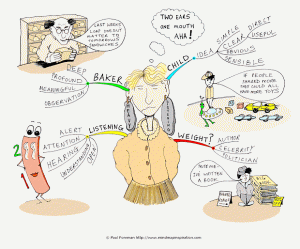 LAST WEEKS
LOAF DOES NOT
MATTER TO
TOMORROWS
SANDWICHES
TWO EARS
ONE MOUTH
AHA!
CHILD
IDEA
SIMPLE
DIRECT
CLEAR
USEFUL
OBVIOUS
SENSIBLE
IF PEOPLE
SHARED MORE
THEY COULD ALL
HAVE MORE TOYS
BAKER
DEEP
PROFOUND
MEANINGFUL
OBSERVATION
LISTENING
ALERT
ATTENTION
HEARING
UNDERSTANDING
WEIGHT?
AUTHOR
CELEBRITY
POLITICIAN
I'VE WRITTEN
A BOOK
2
© Paul Foreman http://www.mindmapinspiration.com